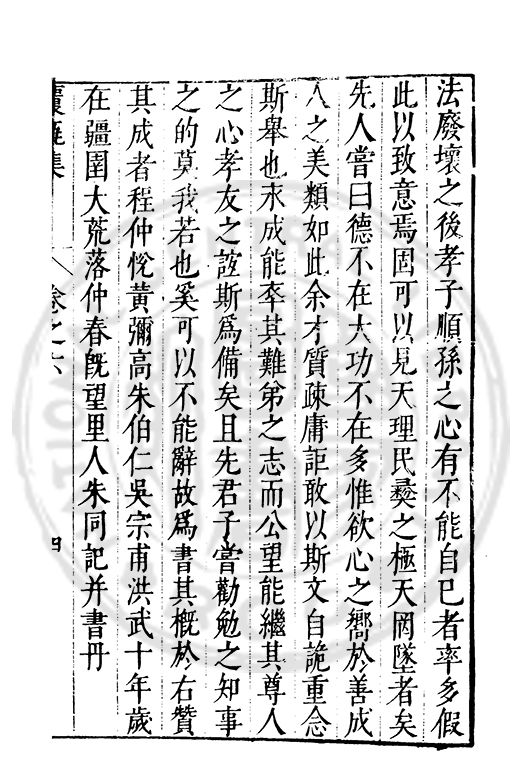 法廢壞之後孝子順孫之心有不能自已者率多假
此以致意焉固可以見天理民彜之極天罔墜者矣
先人嘗曰德不在大功不在多惟欲心之嚮於善成
人之美類如此余才質疎庸詎敢以斯文自詭重念
斯舉也永成能率其難弟之志而公望能繼其尊人
之心孝友之誼斯爲備矣且先君子嘗勸勉之知事
之的莫我若也奚可以不能辭故爲書其概於右贊
其成者程仲悅黃彌高朱伯仁吳宗甫洪武十年歲
在疆圉大荒落仲春旣望里人朱同記并書丹
覆瓿集 卷之六 四